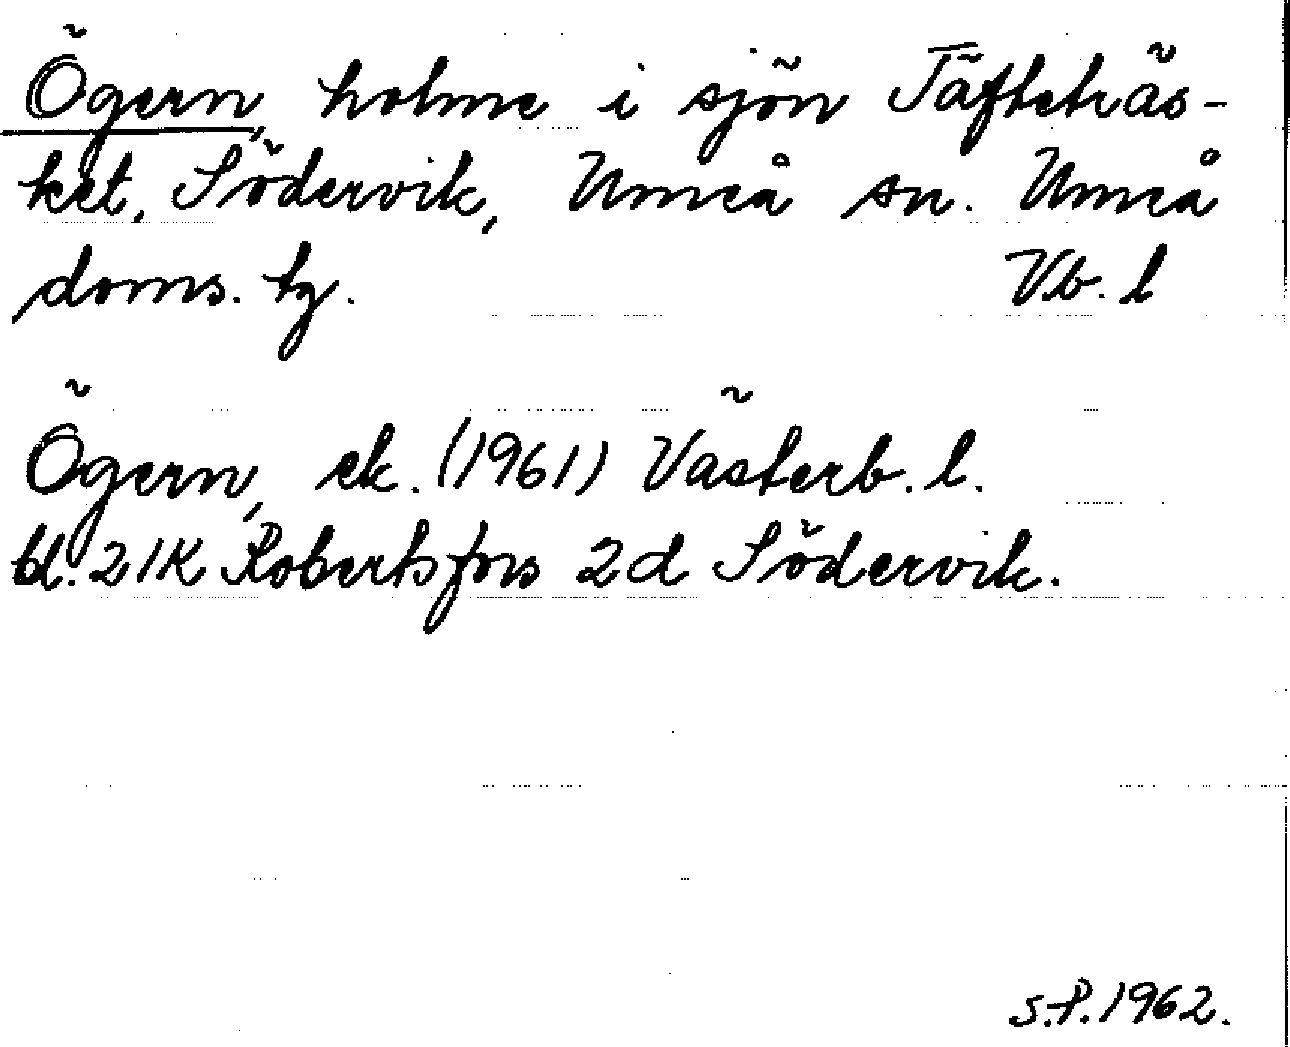 Ögern, holme i sjön Täfteträs-
ket, Södervik, Umeå sn. Umeå
doms. tg. Vb. l
Ögern, ek. (1961) Västerb. l.
bl. 21K Robertsfors 2d Södervik.
S.P. 1962.